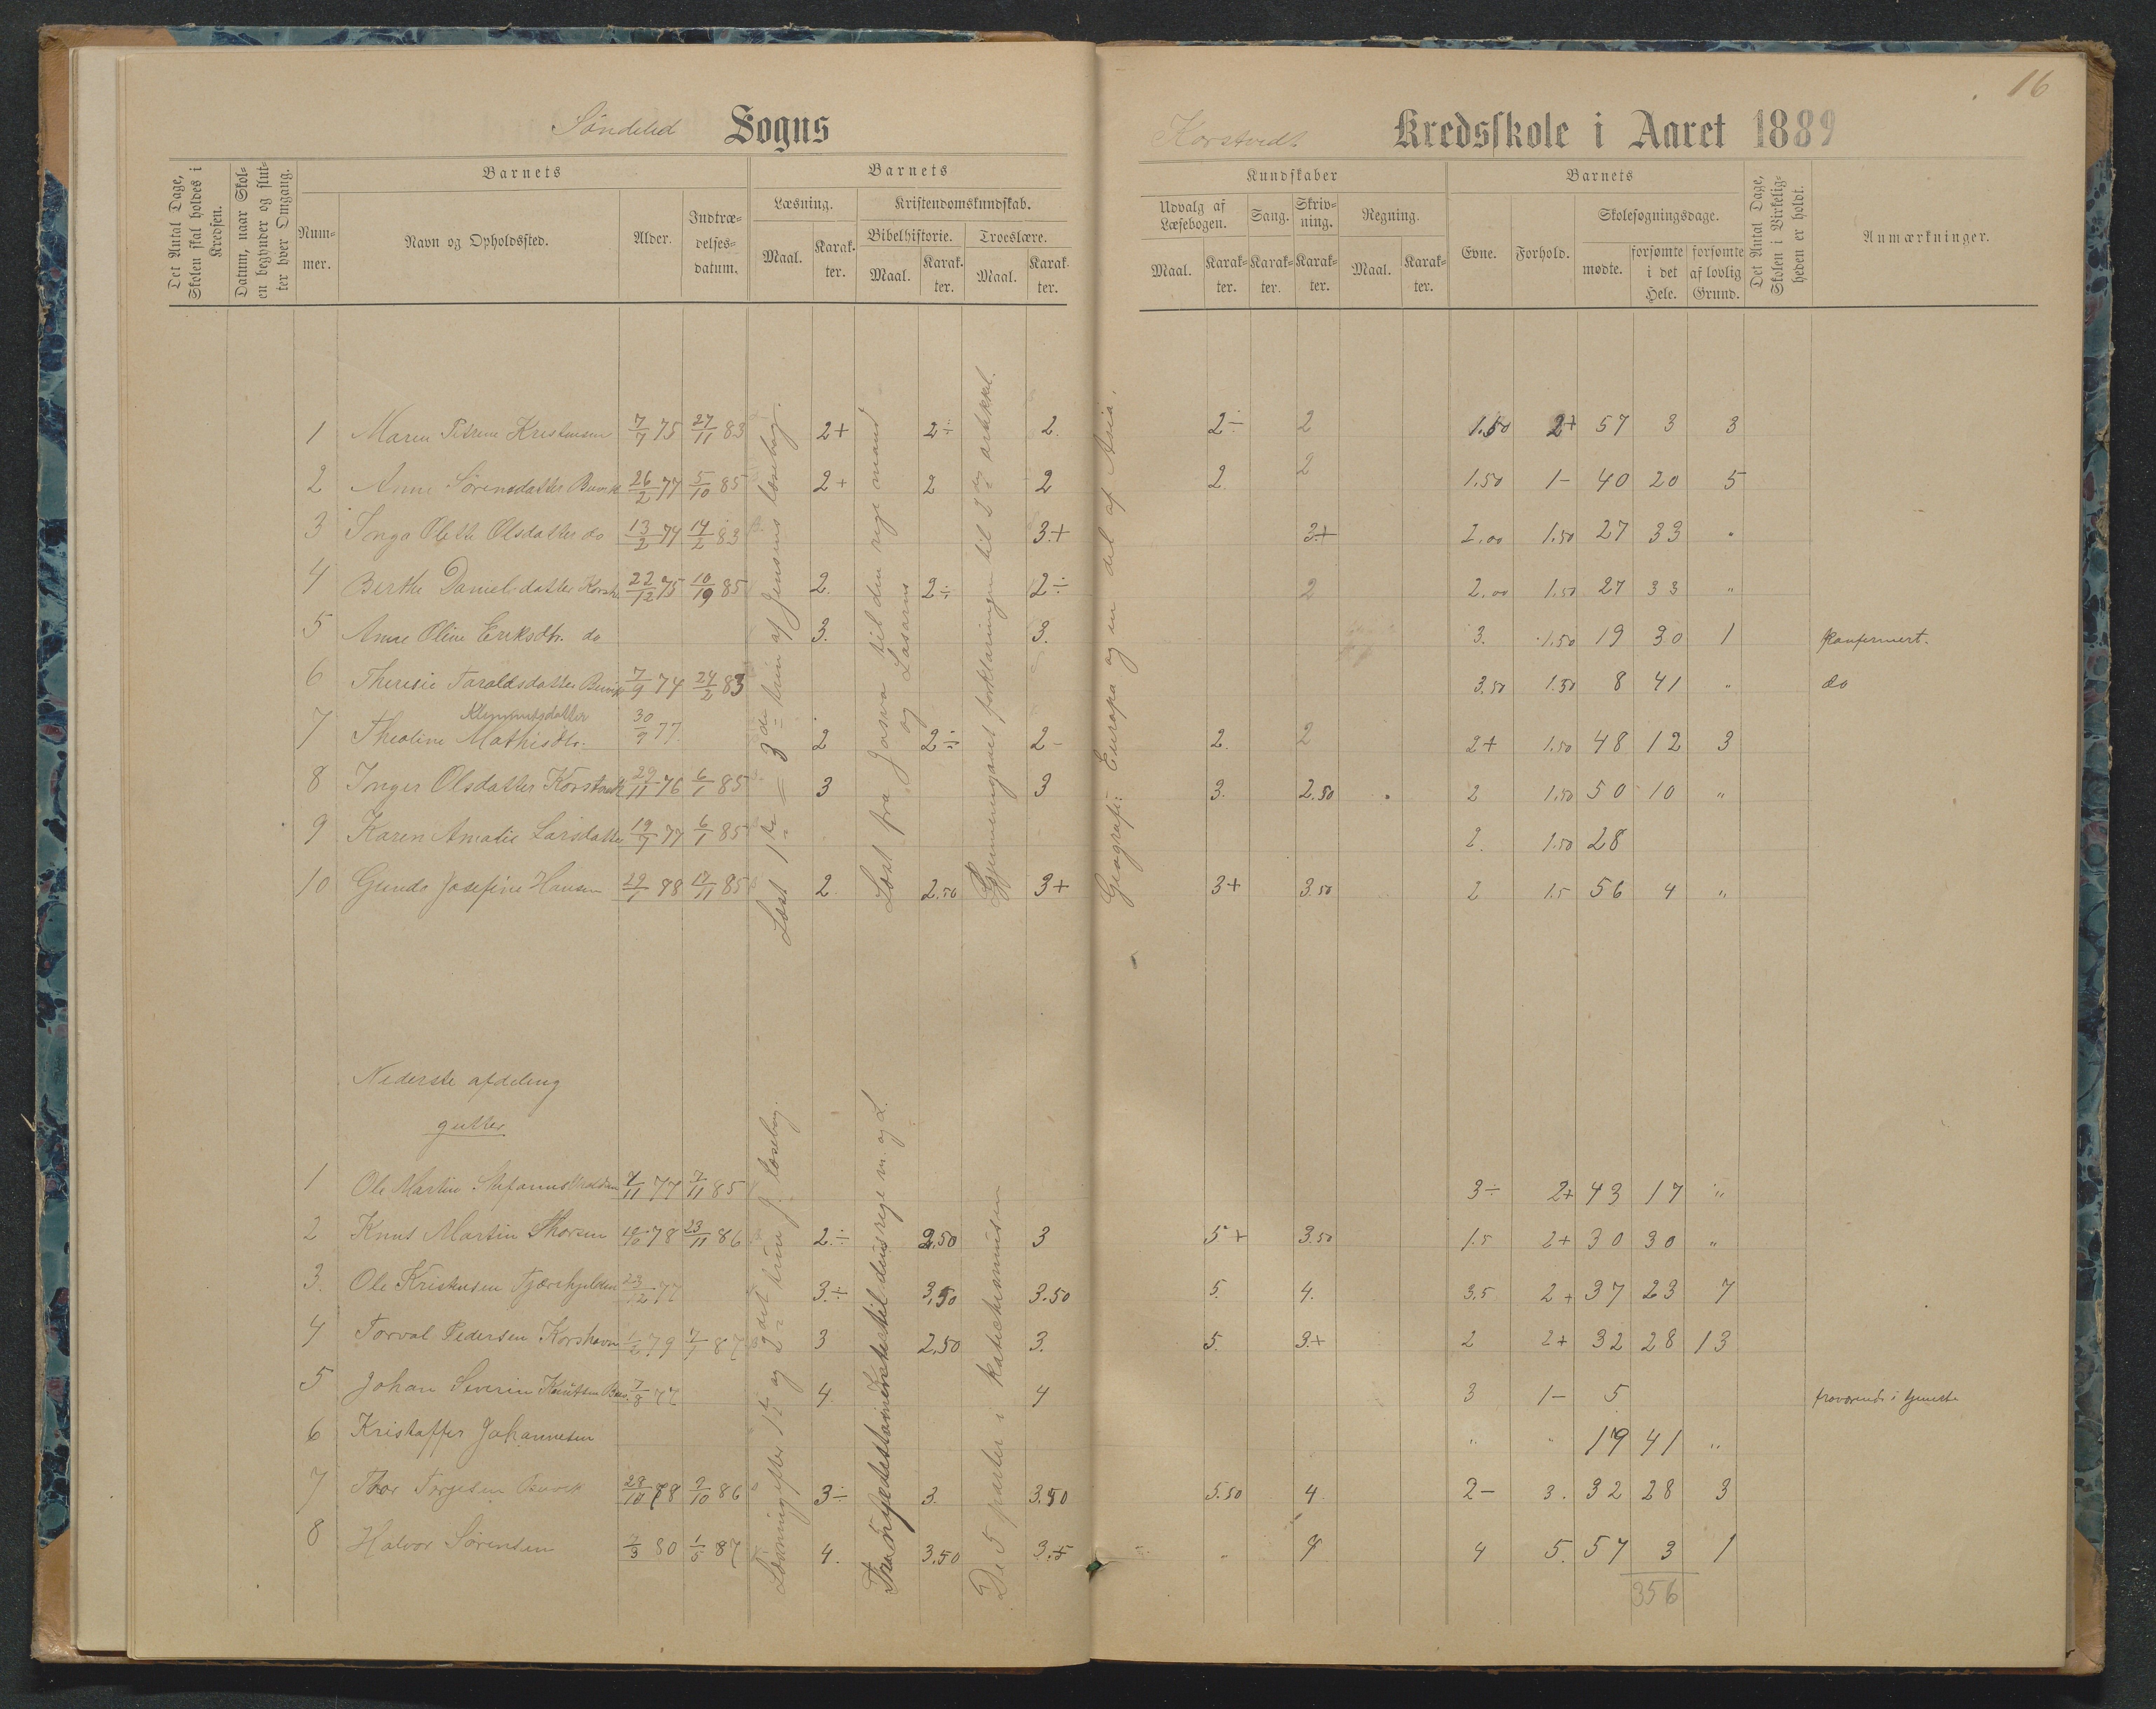 16
Søndeled Sogns
Korstvedt Kredsskole i Aaret 1889
Det Antal Dage, Skolen skal holdes i Kredsen.
Datum, naar Skolen begynder og slutter hver Omgang.
Barnets
Nummer.
Navn og Opholdssted.
Alder.
Indtrædelsesdatum.
Barnets
Læsning.
Maal.
Karakter.
Kristendomskundskab.
Bibelhistorie.
Maal.
Karakter.
Troeslære.
Maal.
Karakter.
Kundskaber
Udvalg af Læsebogen.
Maal.
Karakter.
Sang.
Karakter.
Skrivning.
Karakter.
Regning.
Maal.
Karakter.
Barnets
Evne.
Forhold.
Skolesøgningsdage.
mødte.
forsømte i det Hele.
forsømte af lovlig Grund.
Det Antal Dage, Skolen i Virkeligheden er holdt.
Anmærkninger.
1 Maren Petrine Kristensen 7/7 75 27/11 83 2+ 2÷ 2. 2÷ 2 1.50 2+ 57 3 3
2 Anne Sørensdatter Buvik 26/2 77 5/10 85 2+ 2 2 2. 2 1.50 1- 40 20 5
3 Inga Olette Olsdatter do 13/2 74 14/2 83 3.+ 3.+ 2.00 1.50 27 33 "
4 Berthe Danielsdatter 22/12 75 10/9 85 2. 2÷ 2÷ 2 2.00 1.50 27 33 "
5 Anne Oline Eriksdtr. do 3. 3. 3. 1.50 19 30 1 konfirmert.
6 Theresie Taraldsdatter Buvik 7/9 74 24/2 83 3.50 1.50 8 41 " do
Klemmetsdatter
7 Theoline Mathisdtr. 30/9 77 2 2÷ 2- 2. 2 2+ 1.50 48 12 3
8 Inger Olsdatter 29/11 76 6/1 85 3 3 3. 2.50 2 1.50 50 10 "
9 Karen Amalie Larsdatter 19/7 77 6/1 85 2. 1.50 28
10 Gunda Josefine Hansen 2. 2.50 3+ 3+ 3.50 2 1.5 56 4 "
Læst 1ste = 3die trin af Jensens læsebog.
Læst fra Josva til den rige mand og Lasarus
Gjennemgaaet forklaringen til 2den artikkel.
Geografi: Europa og en del af Asia.
Nederste afdeling
gutter
1 Ole Martin 77 7/11 85 3÷ 2+ 43 17 "
2 Knut Martin Thorsen 78 23/11 86 2.÷ 2,50 3 5+ 3.50 1.5 2+ 30 30 "
3. Ole Kristensen 23/12 77 3.÷ 3,50 3.50 5. 4. 3,5 2+ 37 23 7
4 Torval Pedersen Korshavn 1/2 79 87 3 2,50 3. 5. 3.+ 2 2+ 32 28 13
5 Johan Severin Knutsen 7/8 77 4. 4 3 1- 5 fraværende i tjeneste
6 Kristoffer Johannesen " " 19 41 "
7 Thor Torjesen Buvik 28/10 78 86 3÷ 3. 3.50 5.50 4. 2- 3. 32 28 3
8 Halvor Sørensen 80 1/5 87 4. 3.50 3.5 " 4 5. 57 3 1
356
og 2det trin J. læsebog.
til den rige m. og L.
De 5 parter i katekismusen